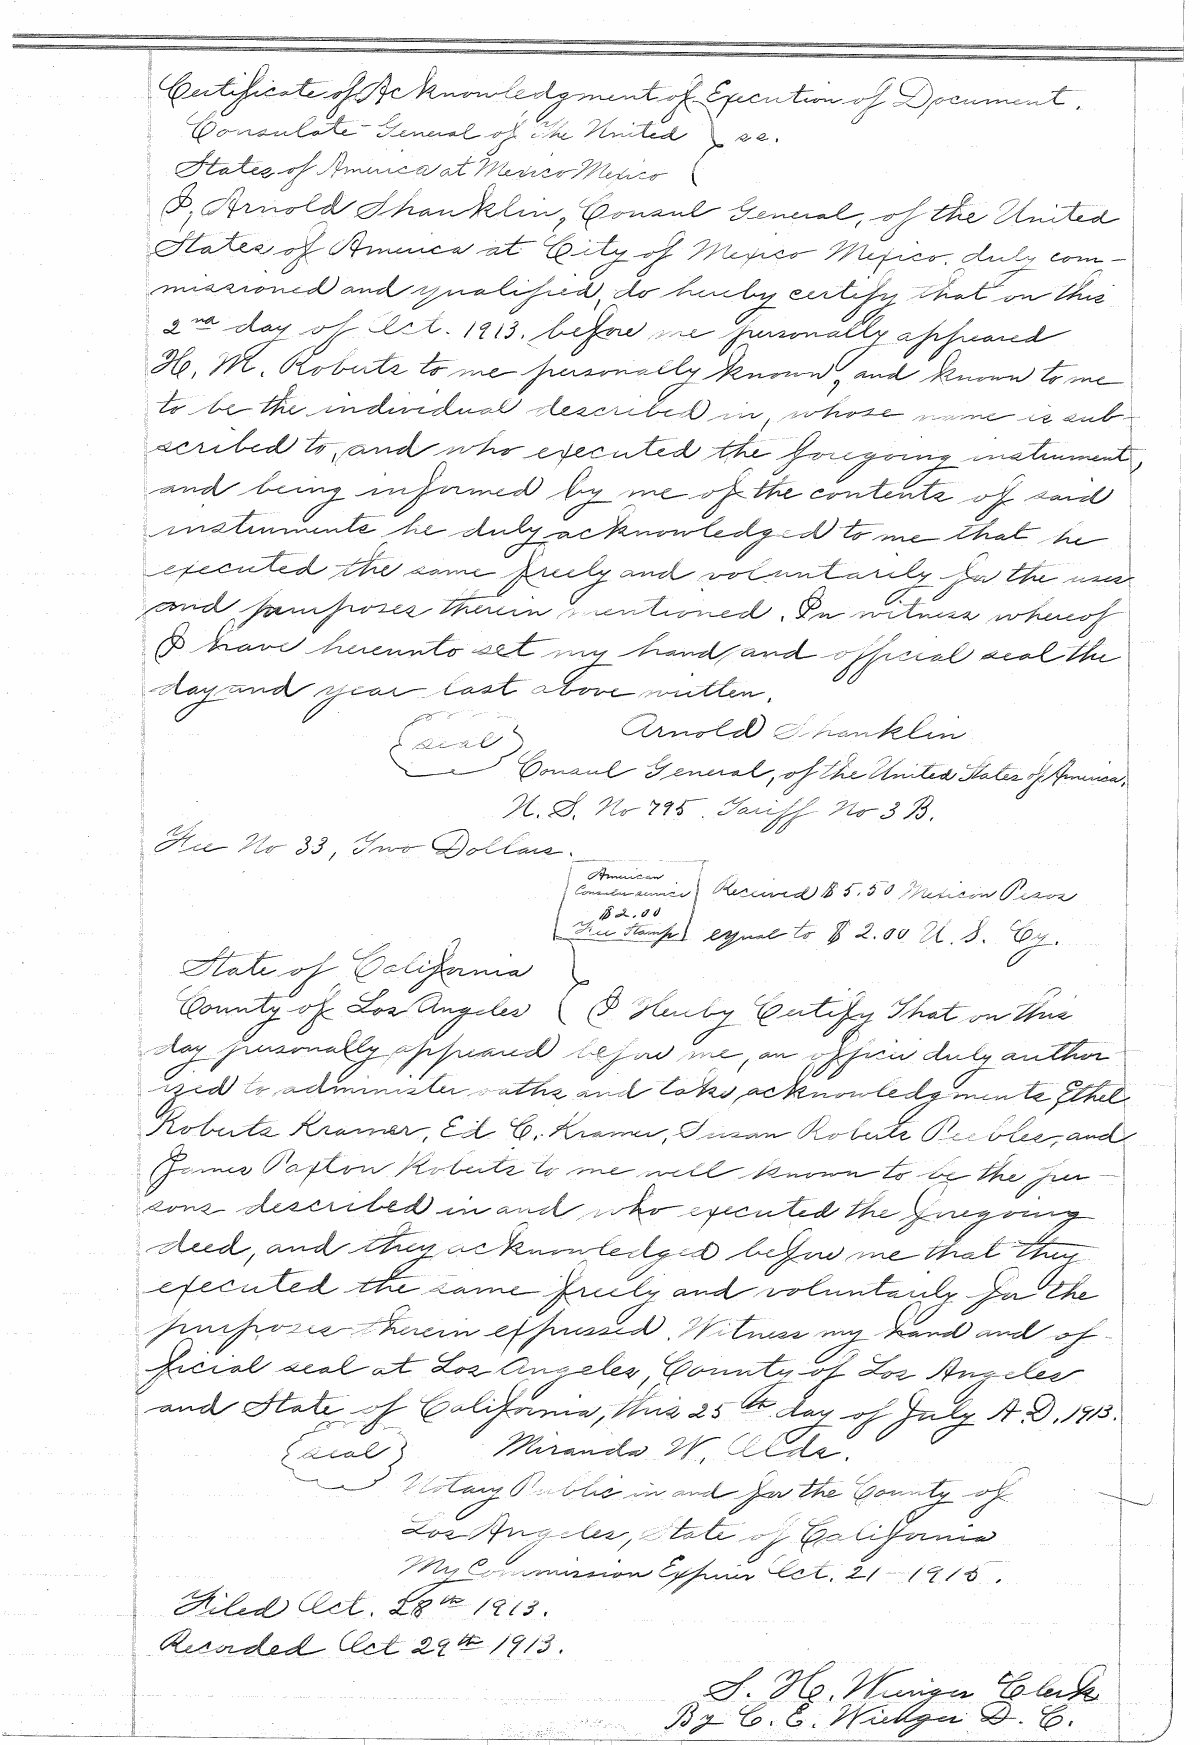 Certificate of Acknowledgment of Execution of Document.
Consulate General of the United } ss.
States of America at Mexico Mexico
I, Arnold Shanklin, Consul General, of the United
States of America at City of Mexico Mexico, duly com-
missioned and qualified, do hereby certify that on this
2nd day of Oct. 1913. before me personally appeared
H. M. Roberts to me personally known, and known to me
to be the individual described in, whose name is sub-
scribed to, and who executed the foregoing instrument,
and being informed by me of the contents of said
instruments he duly acknowledged to me that he
executed the same freely and voluntarily for the uses
and purposes therein mentioned. In witness whereof
I have hereunto set my hand and official seal the
day and year last above written.
Arnold Shanklin
(seal)
Consul General, of the United States of America.
N. S. No 795. Tariff No 3 B.
Fee No 33, Two Dollars.
American
Consular service
$2.00
Fee Stamp
Received $5.50 Mexican Pesos
equal to $2.00 U. S. Cy.
State of California
County of Los Angeles } I Hereby Certify That on this
day personally appeared before me, an officer duly author
ized to administer oaths and take acknowledgments, Ethel
Roberts Kramer, Ed C. Kramer, Susan Roberts Peebles, and
James Paxton Roberts to me well known to be the per-
sons described in and who executed the foregoing
deed, and they acknowledged before me that they
executed the same freely and voluntarily for the
purposes therein expressed. Witness my hand and of-
ficial seal at Los Angeles, County of Los Angeles
and State of California, this 25th day of July A.D. 1913.
(seal) Miranda W. Olds.
Notary Public in and for the County of
Los Angeles, State of California
My Commission Expires Oct. 21 - 1915.
Filed Oct. 28th 1913.
Recorded Oct 29th 1913.
S. H. Wienges Clerk
By C. E. Wienges D. C.